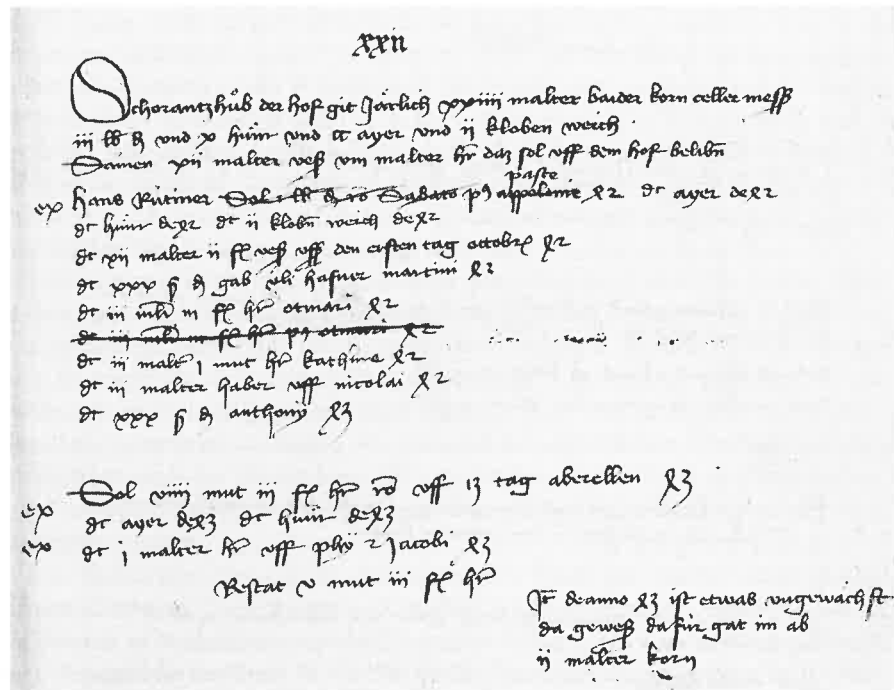 xxii
Schorantzhůb der hof git Järlich xxiiii malter baider korn celler mess
iii lb d und x hůnr und cc ayer und ii kloben werch
Samen xii malter vess viii malter hr daz sol uff dem hof belibn
paste
ex Hans Rütiner Sol lb d Sabato appolonie 82 dt ayer de 82
dt hůnr de 82 dt ii klobn werch de 82
dt xii malter ii fl vess uff den ersten tag ottobr 82
dt xxx ß d gab üli hafner martini 82
dt iii mlr iii fl hr otmari 82
dt iii mlr iii fl hr otmari 82
dt iii malter i mut hr kathine 82
dt iii malter haber uff nicolai 82
dt xxx ß d anthony 83
Sol viiii mut iii fl hr uff 13 tag aberellen 83
ex dt ayer de 83 dt hůnr de 83
ex dt i malter hr uff phy 2 Jacobi 83
Restat v mut iii fl hr
de anno 83 ist etwas ungewächst
da gewess dafür gat im ab
ii malter korn